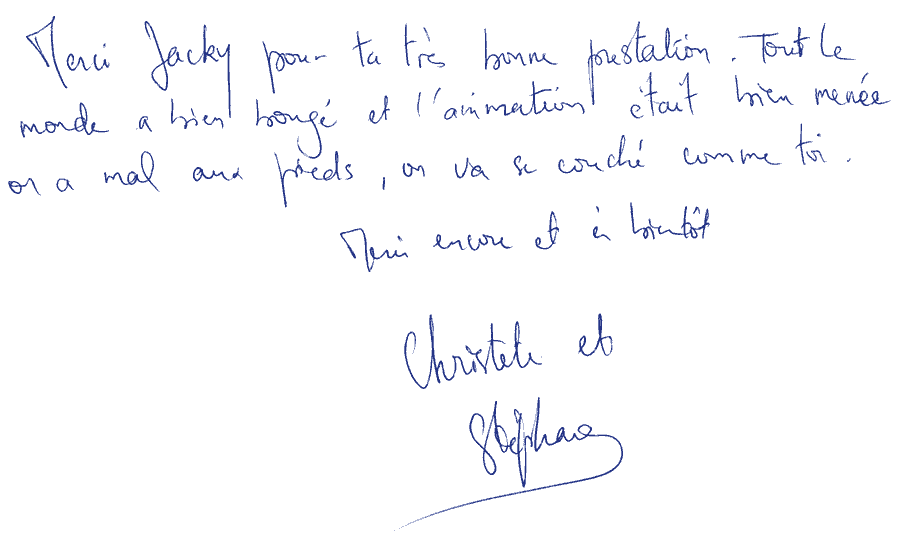 Merci Jacky pour ta très bonne prestation. Tout le
monde a bien bougé et l'animation était bien menée
on a mal aux pieds, on va se couché comme toi.
Merci encore et à bientôt
Christele et
Stéphane